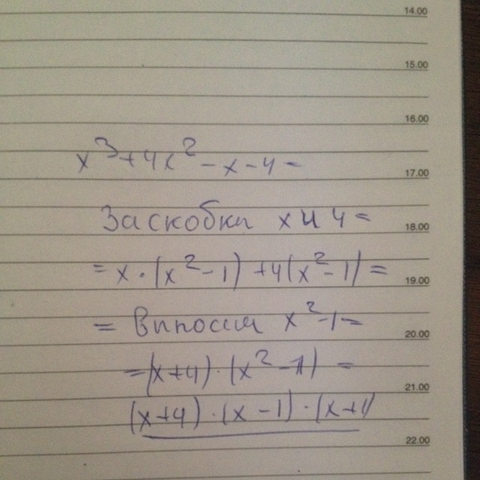 14.00
15.00
16.00
x³+4x²-x-4=
17.00
За скобки х и 4=
18.00
=x·(x²-1)+4(x²-1)=
19.00
= Выносим x²-1=
20.00
=(x+4)·(x²-1)=
21.00
(x+4)·(x-1)·(x+1)
22.00